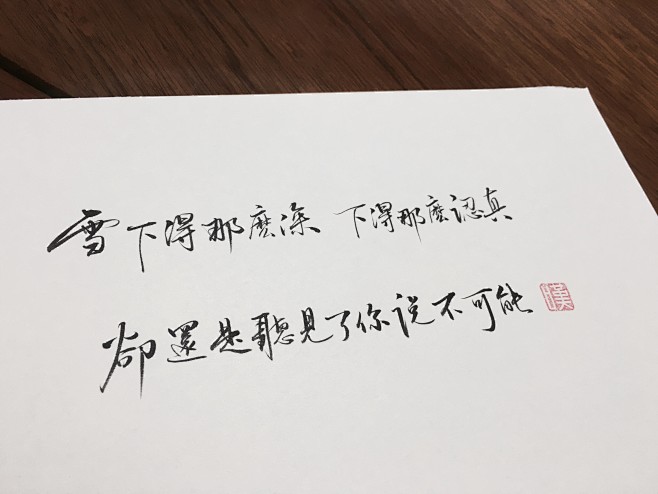 雪下得那麽深 下得那麽認真
卻還是聽見了你说不可能
漢